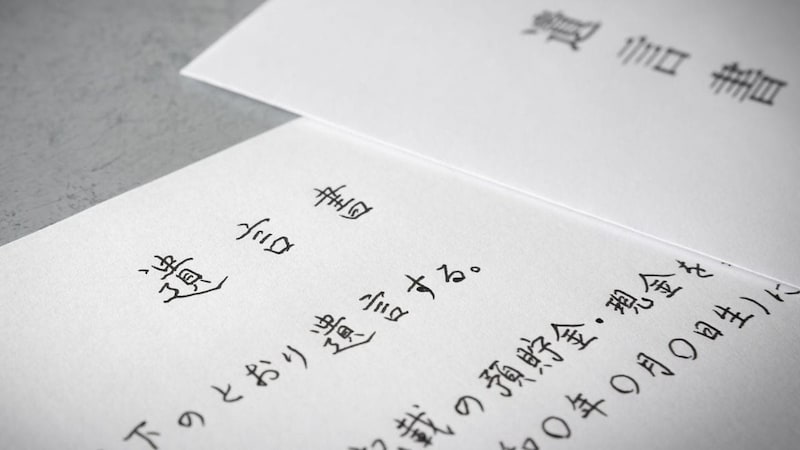 遺言書
遺言書
下のとおり遺言する。
記載の預貯金・現金を
和〇年〇月〇日生)に